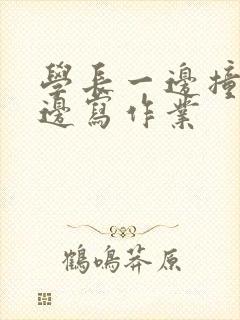 學長一邊撞
邊寫作業
鶴鳴莽原